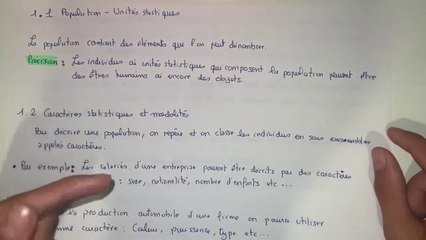 1. 1 Population - Unités statistiques
La population contient des éléments que l'on peut dénombrer.
Précision : Les individus ou unités statistiques qui composent la population peuvent être
des êtres humains ou encore des objets.
1. 2 Caractères statistiques et modalités
Pour décrire une population, on repère et on classe les individus en sous ensembles
appelés caractères.
• Par exemple : Les salariés d'une entreprise peuvent être décrits par des caractères
: sexe, nationalité, nombre d'enfants etc...
la production automobile d'une firme on pourra utiliser
comme caractère : Couleur, puissance, type etc...